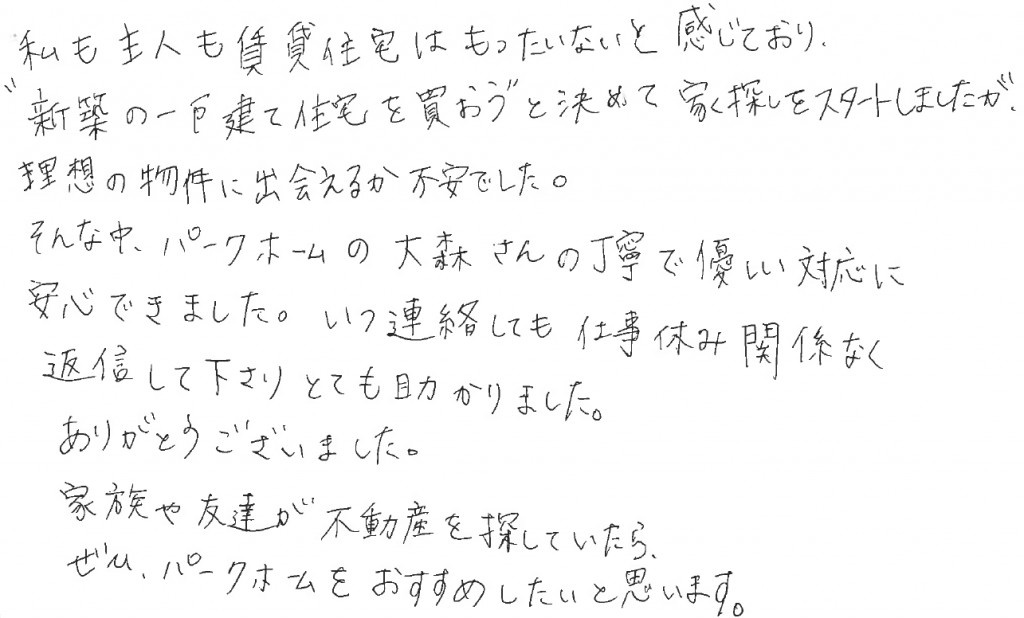 私も主人も賃貸住宅はもったいないと感じており、
"新築の一戸建て住宅を買おう"と決めて家探しをスタートしましたが、
理想の物件に出会えるか不安でした。
そんな中、パークホームの大森さんの丁寧で優しい対応に
安心できました。いつ連絡しても仕事休み関係なく
返信して下さりとても助かりました。
ありがとうございました。
家族や友達が不動産を探していたら、
ぜひ、パークホームをおすすめしたいと思います。